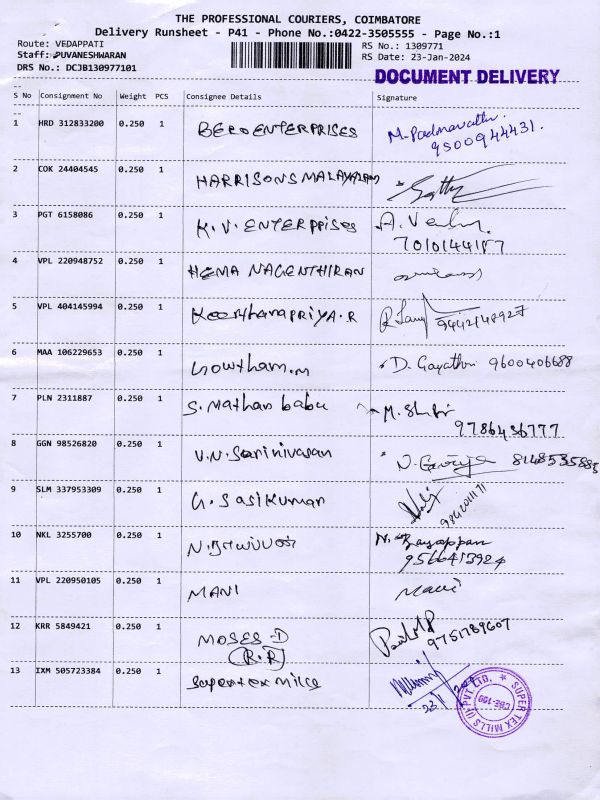 THE PROFESSIONAL COURIERS, COIMBATORE
Delivery Runsheet - P41 - Phone No.:0422-3505555 - Page No.:1
Route: VEDAPPATI
RS No.: 1309771
Staff: PUVANESHWARAN
RS Date: 23-Jan-2024
DRS No.: DCJB130977101
DOCUMENT DELIVERY
S No Consignment No Weight PCS Consignee Details Signature
1 HRD 312833200 0.250 1 BERO ENTERPRISES M. Padmavathi.
9500944431.
2 COK 24404545 0.250 1 HARRISONS MALAYALAM
3 PGT 6158086 0.250 1 K.V. ENTERPRISES A. Venku.
7010144187
4 VPL 220948752 0.250 1 HEMA NAGENTHIRAN
5 VPL 404145994 0.250 1 KeerthanaPRIYA.R
9442148927
6 MAA 106229653 0.250 1 Gowtham.m D. Gayathri 9600406688
7 PLN 2311887 0.250 1 S. Mathan babu M.
9786436777
8 GGN 98526820 0.250 1 V.N. Sarinivasan N. 8148535885
9 SLM 337953309 0.250 1 G. Sasikumar
10 NKL 3255700 0.250 1 N. ராயப்பன் N. Rayappan
9566413924
11 VPL 220950105 0.250 1 MANI Mani
12 KRR 5849421 0.250 1 MOSES-D
9751789607
(R.R)
13 IXM 505723384 0.250 1 Supertex mills
SUPER TEX MILLS (I) PVT. LTD.
CBE-109